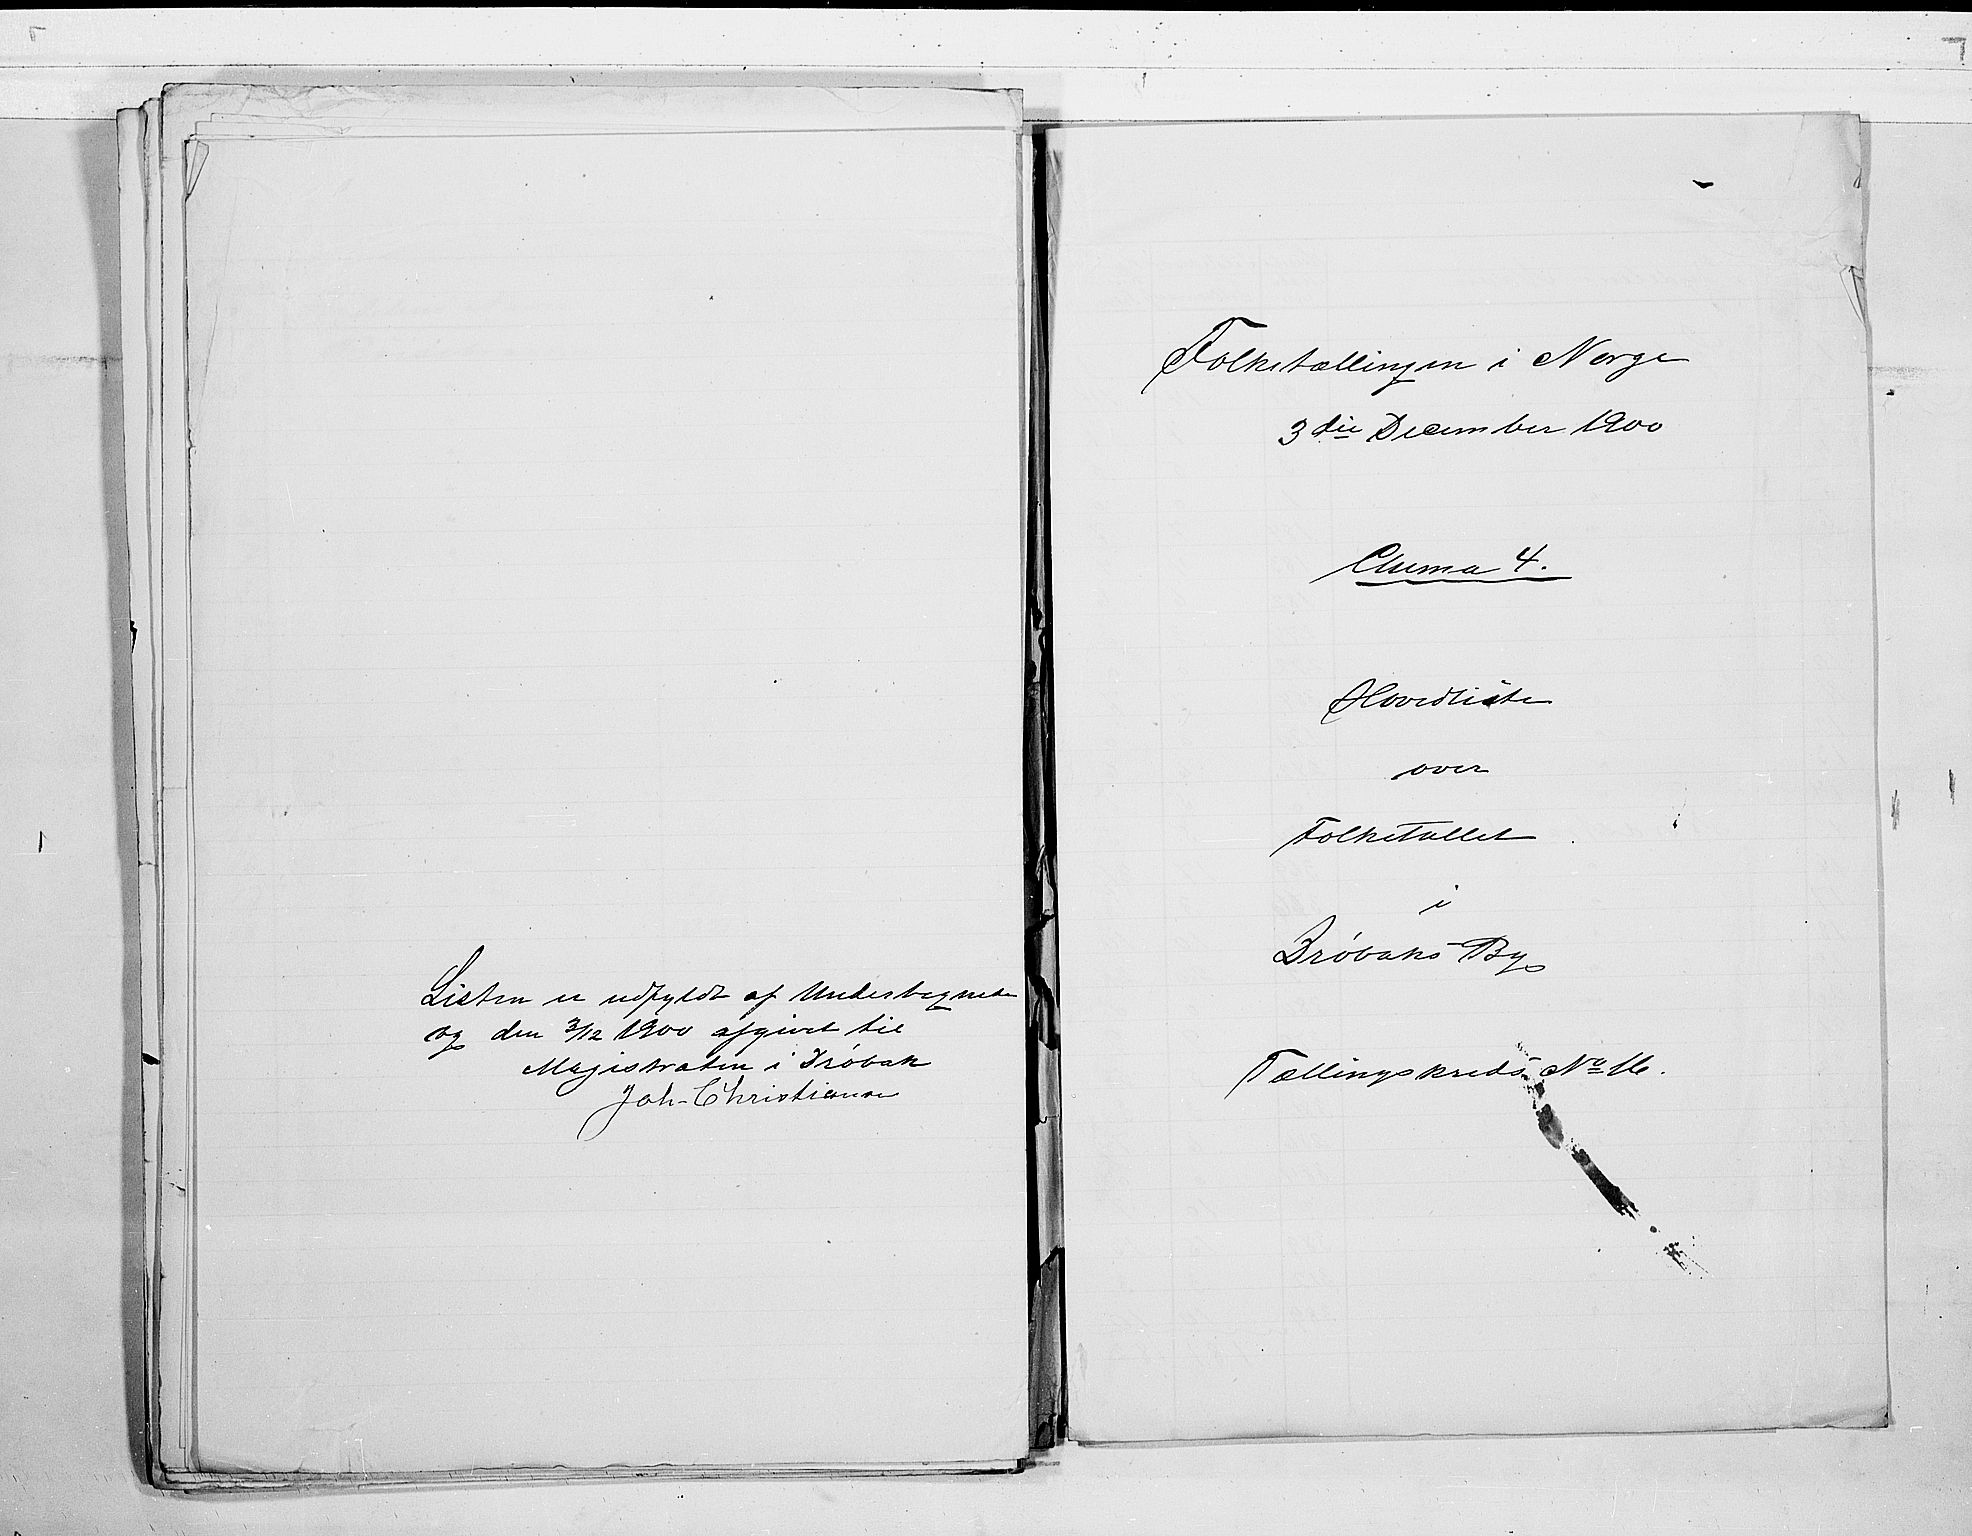 Listen er udfyldt af Undertegnede
og den 3/12 1900 afgivet til
Magistraten i Drøbak
Joh. Christiansen
Folketællingen i Norge
3die December 1900
Chema 4.
Hovedliste
over
Folketallet
i
Drøbaks By
Tællingskreds No